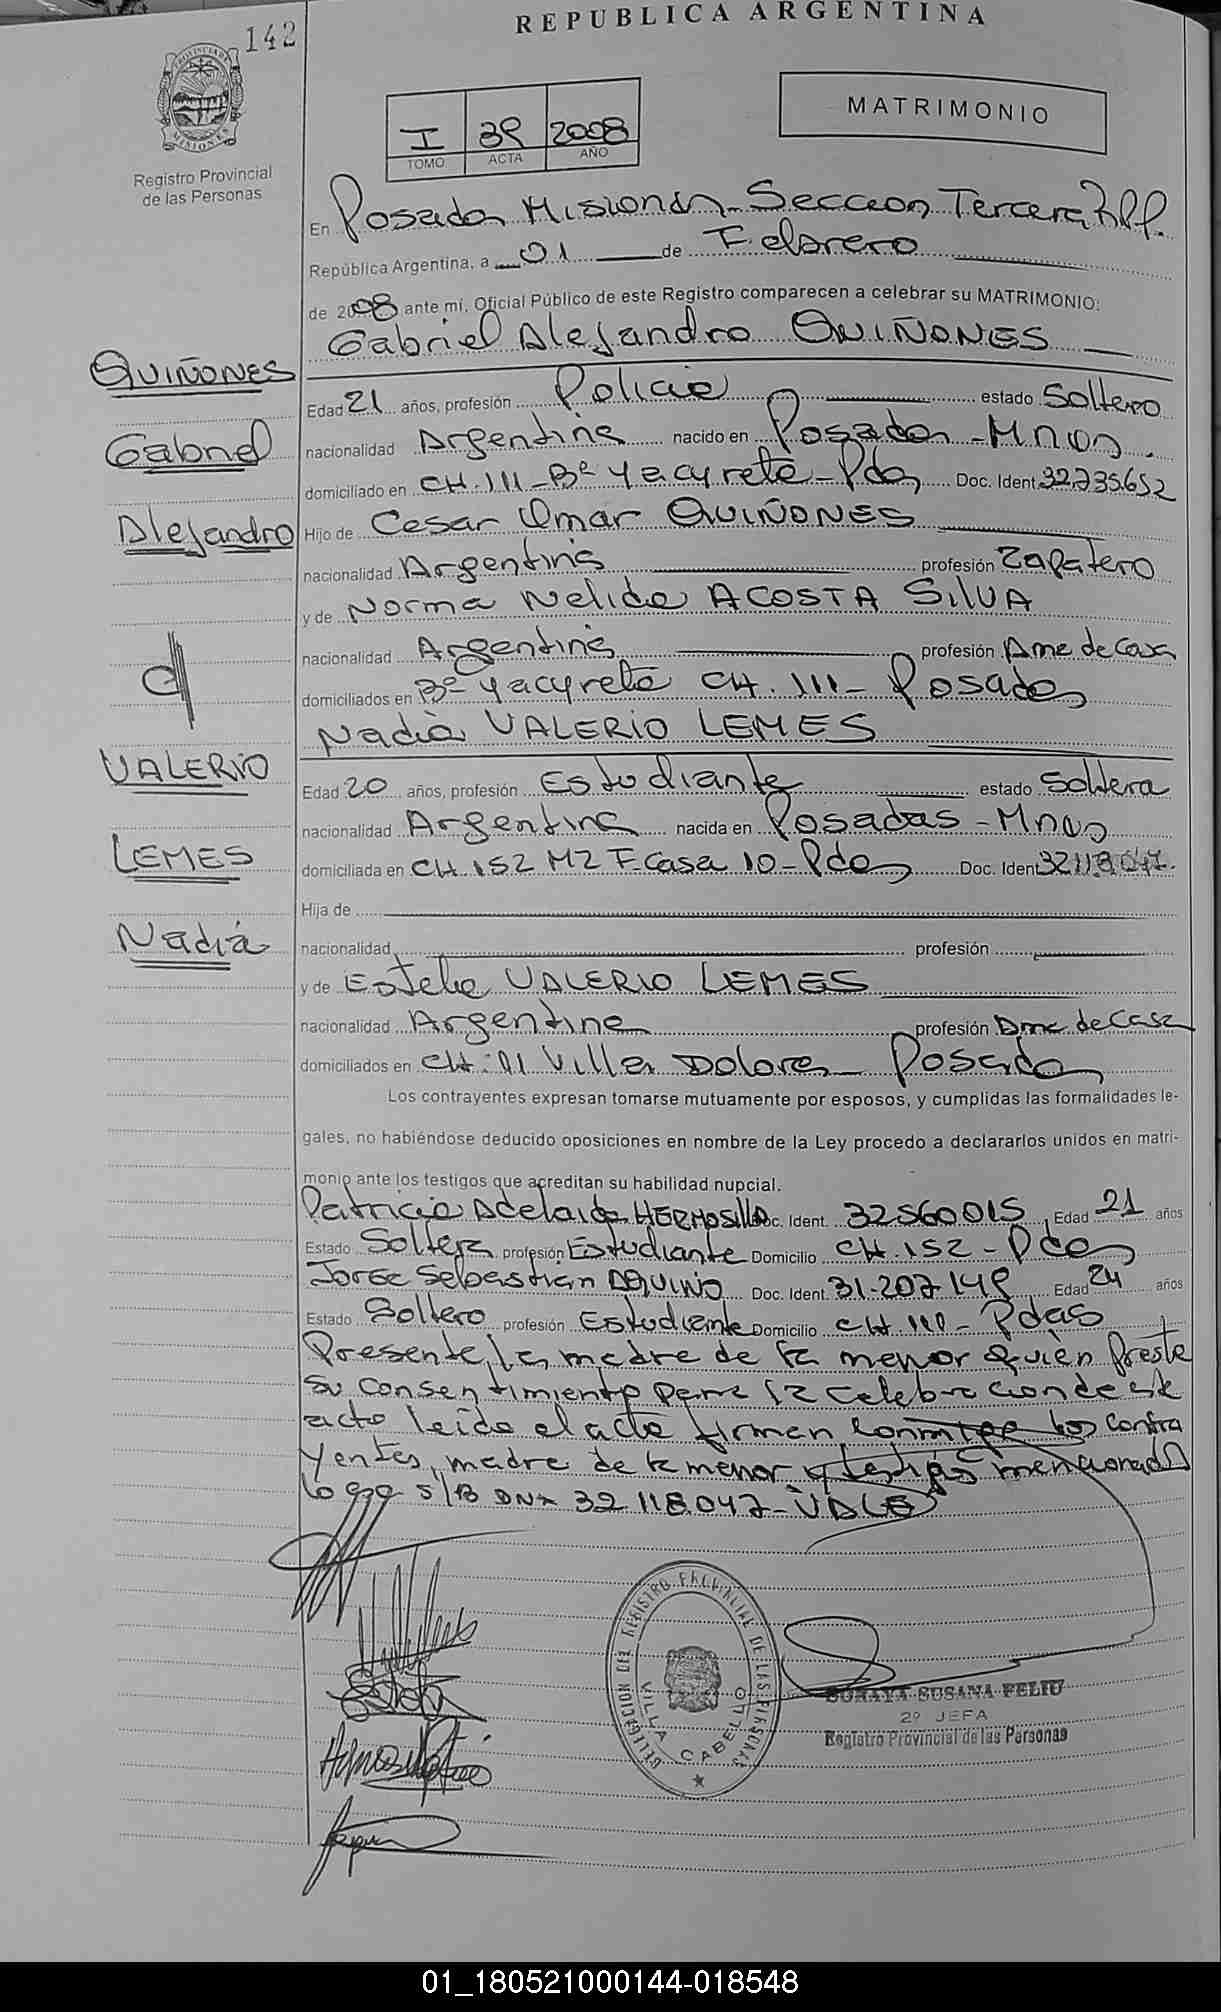 REPUBLICA ARGENTINA
142
PROVINCIA DE MISIONES
Registro Provincial
de las Personas
MATRIMONIO
I 39 2008
TOMO ACTA AÑO
En Posadas Misiones Seccion Tercera R.P.P.
República Argentina, a 01 de Febrero
de 2008 ante mí, Oficial Público de este Registro comparecen a celebrar su MATRIMONIO:
Gabriel Alejandro QUIÑONES
QUIÑONES
Gabriel
Alejandro
Edad 21 años, profesión Policia estado Soltero
nacionalidad Argentina nacido en Posadas - Mnes
domiciliado en CH. 111 - Bº Yacyreta - Pdas Doc. Ident. 32.735.652
Hijo de Cesar Omar QUIÑONES
nacionalidad Argentina profesión Zapatero
y de Norma Nelida ACOSTA SILVA
nacionalidad Argentina profesión Ama de Casa
domiciliados en Bº Yacyreta CH. 111 - Posadas
Nadia VALERIO LEMES
VALERIO
LEMES
Nadia
Edad 20 años, profesión Estudiante estado Soltera
nacionalidad Argentina nacida en Posadas - Mnes
domiciliada en CH. 152 MZ F. Casa 10 - Pdas Doc. Ident 32.118.047.
Hija de
nacionalidad profesión
y de Estela VALERIO LEMES
nacionalidad Argentina profesión Ama de Casa
domiciliados en CH. Villa Dolores Posadas
Los contrayentes expresan tomarse mutuamente por esposos, y cumplidas las formalidades le-
gales, no habiéndose deducido oposiciones en nombre de la Ley procedo a declararlos unidos en matri-
monio ante los testigos que acreditan su habilidad nupcial.
Patricia Adelaida HERMOSILLA Doc. Ident. 32560015 Edad 21 años
Estado Soltera profesión Estudiante Domicilio CH. 152 - Pdas
Jorge Sebastian AQUINO Doc. Ident. 31.207.148 Edad 24 años
Estado Soltero profesión Estudiante Domicilio CH. 111 - Pdas
Presente la madre de la menor quien presta
su consentimiento para la celebracion de este
acto leida el acta firman conmigo los contra
yentes, madre de la menor y testigos mencionados
S/B DNI 32.118.047 - VALE
DELEGACION DEL REGISTRO PROVINCIAL DE LAS PERSONAS
VILLA CABELLO
SORAYA SUSANA FELIU
2º JEFA
Registro Provincial de las Personas
01_180521000144-018548